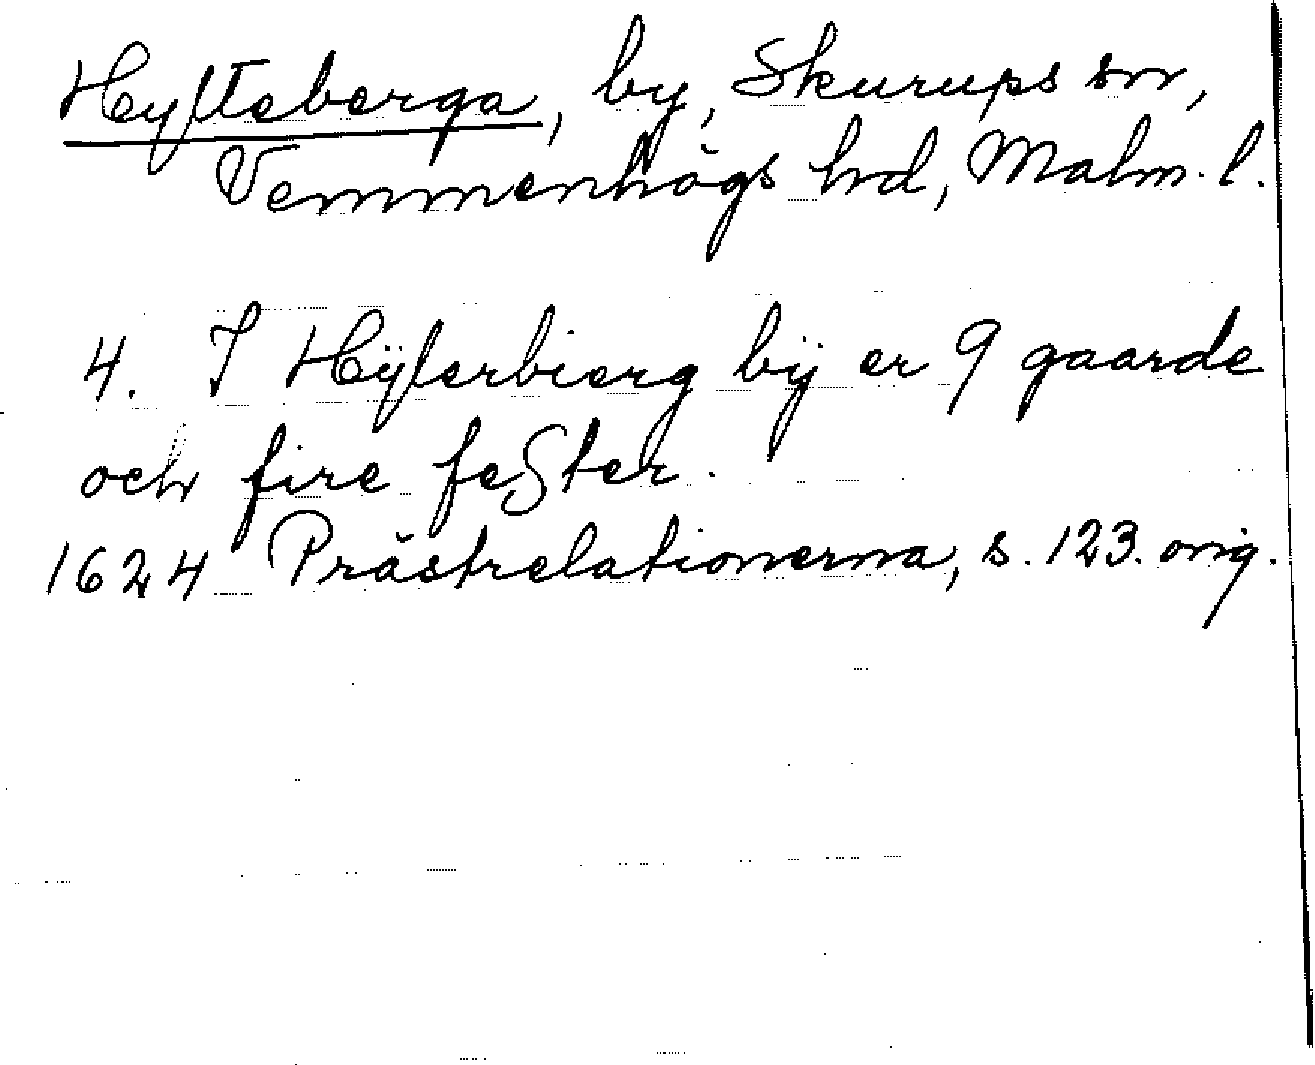 Hylteberga, by, Skurups sn,
Vemmenhögs hd, Malm. l.
4. I Hÿlerbierg bÿ er 9 gaarde
och fire feSter.
1624 Prästrelationerna, s. 123. orig.